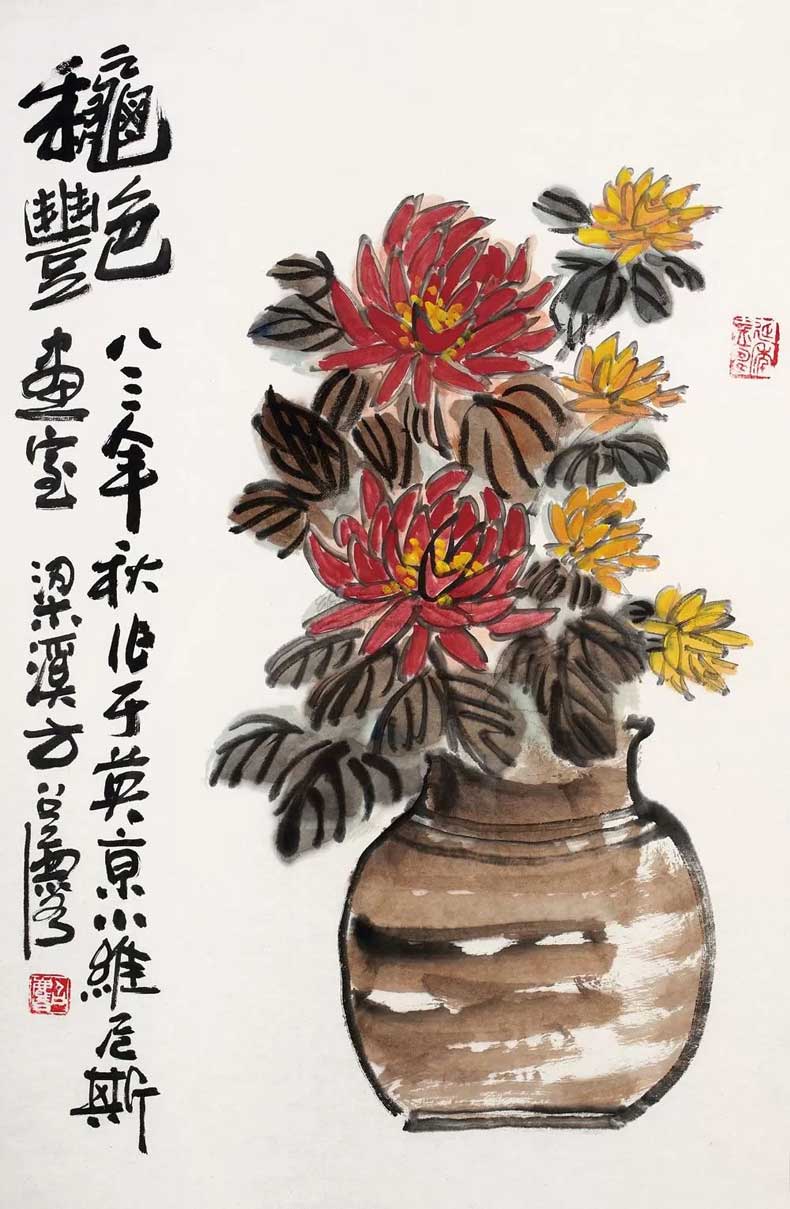 龝艷
八三年秋作于英京小維尼斯
畫室 梁溪方召麐
召麐